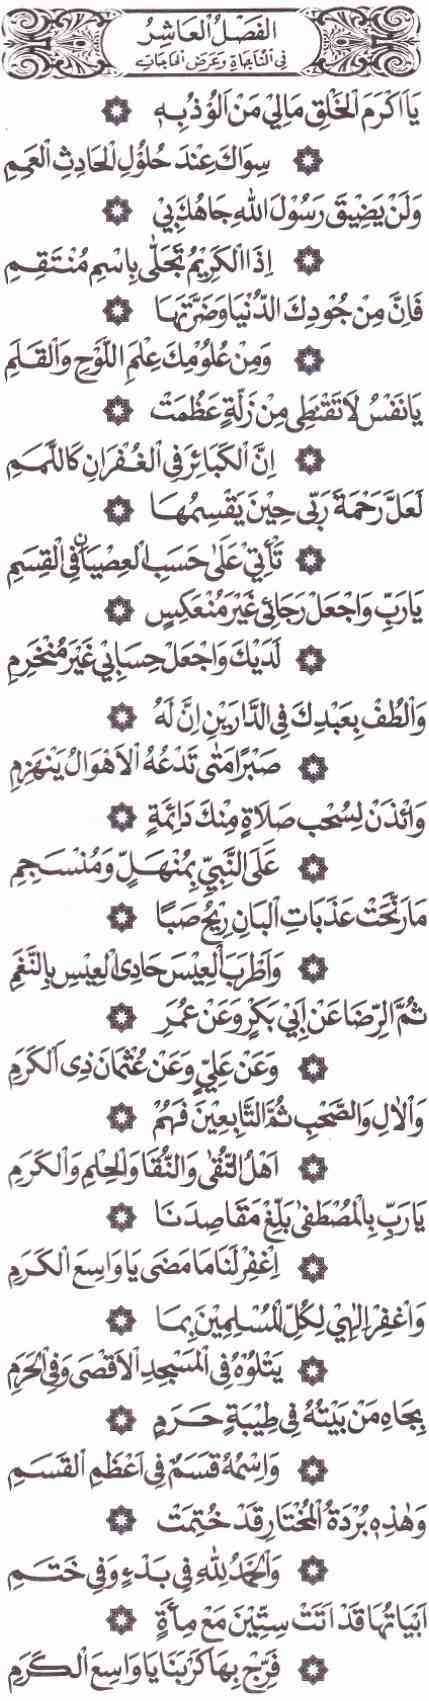 الفَصْلُ العَاشِرُ
فِي المُنَاجَاةِ وَعَرْضِ الحَاجَاتِ
يَا اَكْرَمَ الْخَلْقِ مَالِيْ مَنْ اَلُوْذُ بِهِ
سِوَاكَ عِنْدَ حُلُوْلِ الْحَادِثِ الْعَمِمِ
وَلَنْ يَضِيْقَ رَسُوْلَ اللهِ جَاهُكَ بِيْ
اِذَا الْكَرِيْمُ تَجَلّٰى بِاسْمِ مُنْتَقِمِ
فَاِنَّ مِنْ جُوْدِكَ الدُّنْيَا وَضَرَّتَهَا
وَمِنْ عُلُوْمِكَ عِلْمَ اللَّوْحِ وَالْقَلَمِ
يَا نَفْسُ لَا تَقْنَطِيْ مِنْ زَلَّةٍ عَظُمَتْ
اِنَّ الْكَبَائِرَ فِي الْغُفْرَانِ كَاللَّمَمِ
لَعَلَّ رَحْمَةَ رَبِّيْ حِيْنَ يَقْسِمُهَا
تَأْتِيْ عَلٰى حَسَبِ الْعِصْيَانِ فِي الْقِسَمِ
يَا رَبِّ وَاجْعَلْ رَجَائِيْ غَيْرَ مُنْعَكِسٍ
لَدَيْكَ وَاجْعَلْ حِسَابِيْ غَيْرَ مُنْخَرِمِ
وَالْطُفْ بِعَبْدِكَ فِي الدَّارَيْنِ اِنَّ لَهُ
صَبْرًا مَتٰى تَدْعُهُ الْاَهْوَالُ يَنْهَزِمِ
وَائْذَنْ لِسُحْبِ صَلَاةٍ مِنْكَ دَائِمَةٍ
عَلَى النَّبِيِّ بِمُنْهَلٍّ وَمُنْسَجِمِ
مَا رَنَّحَتْ عَذَبَاتِ الْبَانِ رِيْحُ صَبًا
وَاَطْرَبَ الْعِيْسَ حَادِي الْعِيْسِ بِالنَّغَمِ
ثُمَّ الرِّضَا عَنْ اَبِيْ بَكْرٍ وَعَنْ عُمَرٍ
وَعَنْ عَلِيٍّ وَعَنْ عُثْمَانَ ذِي الْكَرَمِ
وَالْاٰلِ وَالصَّحْبِ ثُمَّ التَّابِعِيْنَ فَهُمْ
اَهْلُ التُّقٰى وَالنُّقَا وَالْحِلْمِ وَالْكَرَمِ
يَا رَبِّ بِالْمُصْطَفٰى بَلِّغْ مَقَاصِدَنَا
اِغْفِرْ لَنَا مَا مَضَى يَا وَاسِعَ الْكَرَمِ
وَاغْفِرْ اِلٰهِيْ لِكُلِّ الْمُسْلِمِيْنَ بِمَا
يَتْلُوْهُ فِي الْمَسْجِدِ الْاَقْصٰى وَفِي الْحَرَمِ
بِجَاهِ مَنْ بَيْتُهُ فِيْ طِيْبَةٍ حَرَمٍ
وَاِسْمُهُ قَسَمٌ فِيْ اَعْظَمِ الْقَسَمِ
وَهٰذِهِ بُرْدَةُ الْمُخْتَارِ قَدْ خُتِمَتْ
وَالْحَمْدُ لِلّٰهِ فِيْ بَدْءٍ وَفِيْ خَتَمِ
اَبْيَاتُهَا قَدْ اَتَتْ سِتِّيْنَ مَعْ مِأَةٍ
فَرِّجْ بِهَا كَرْبَنَا يَا وَاسِعَ الْكَرَمِ